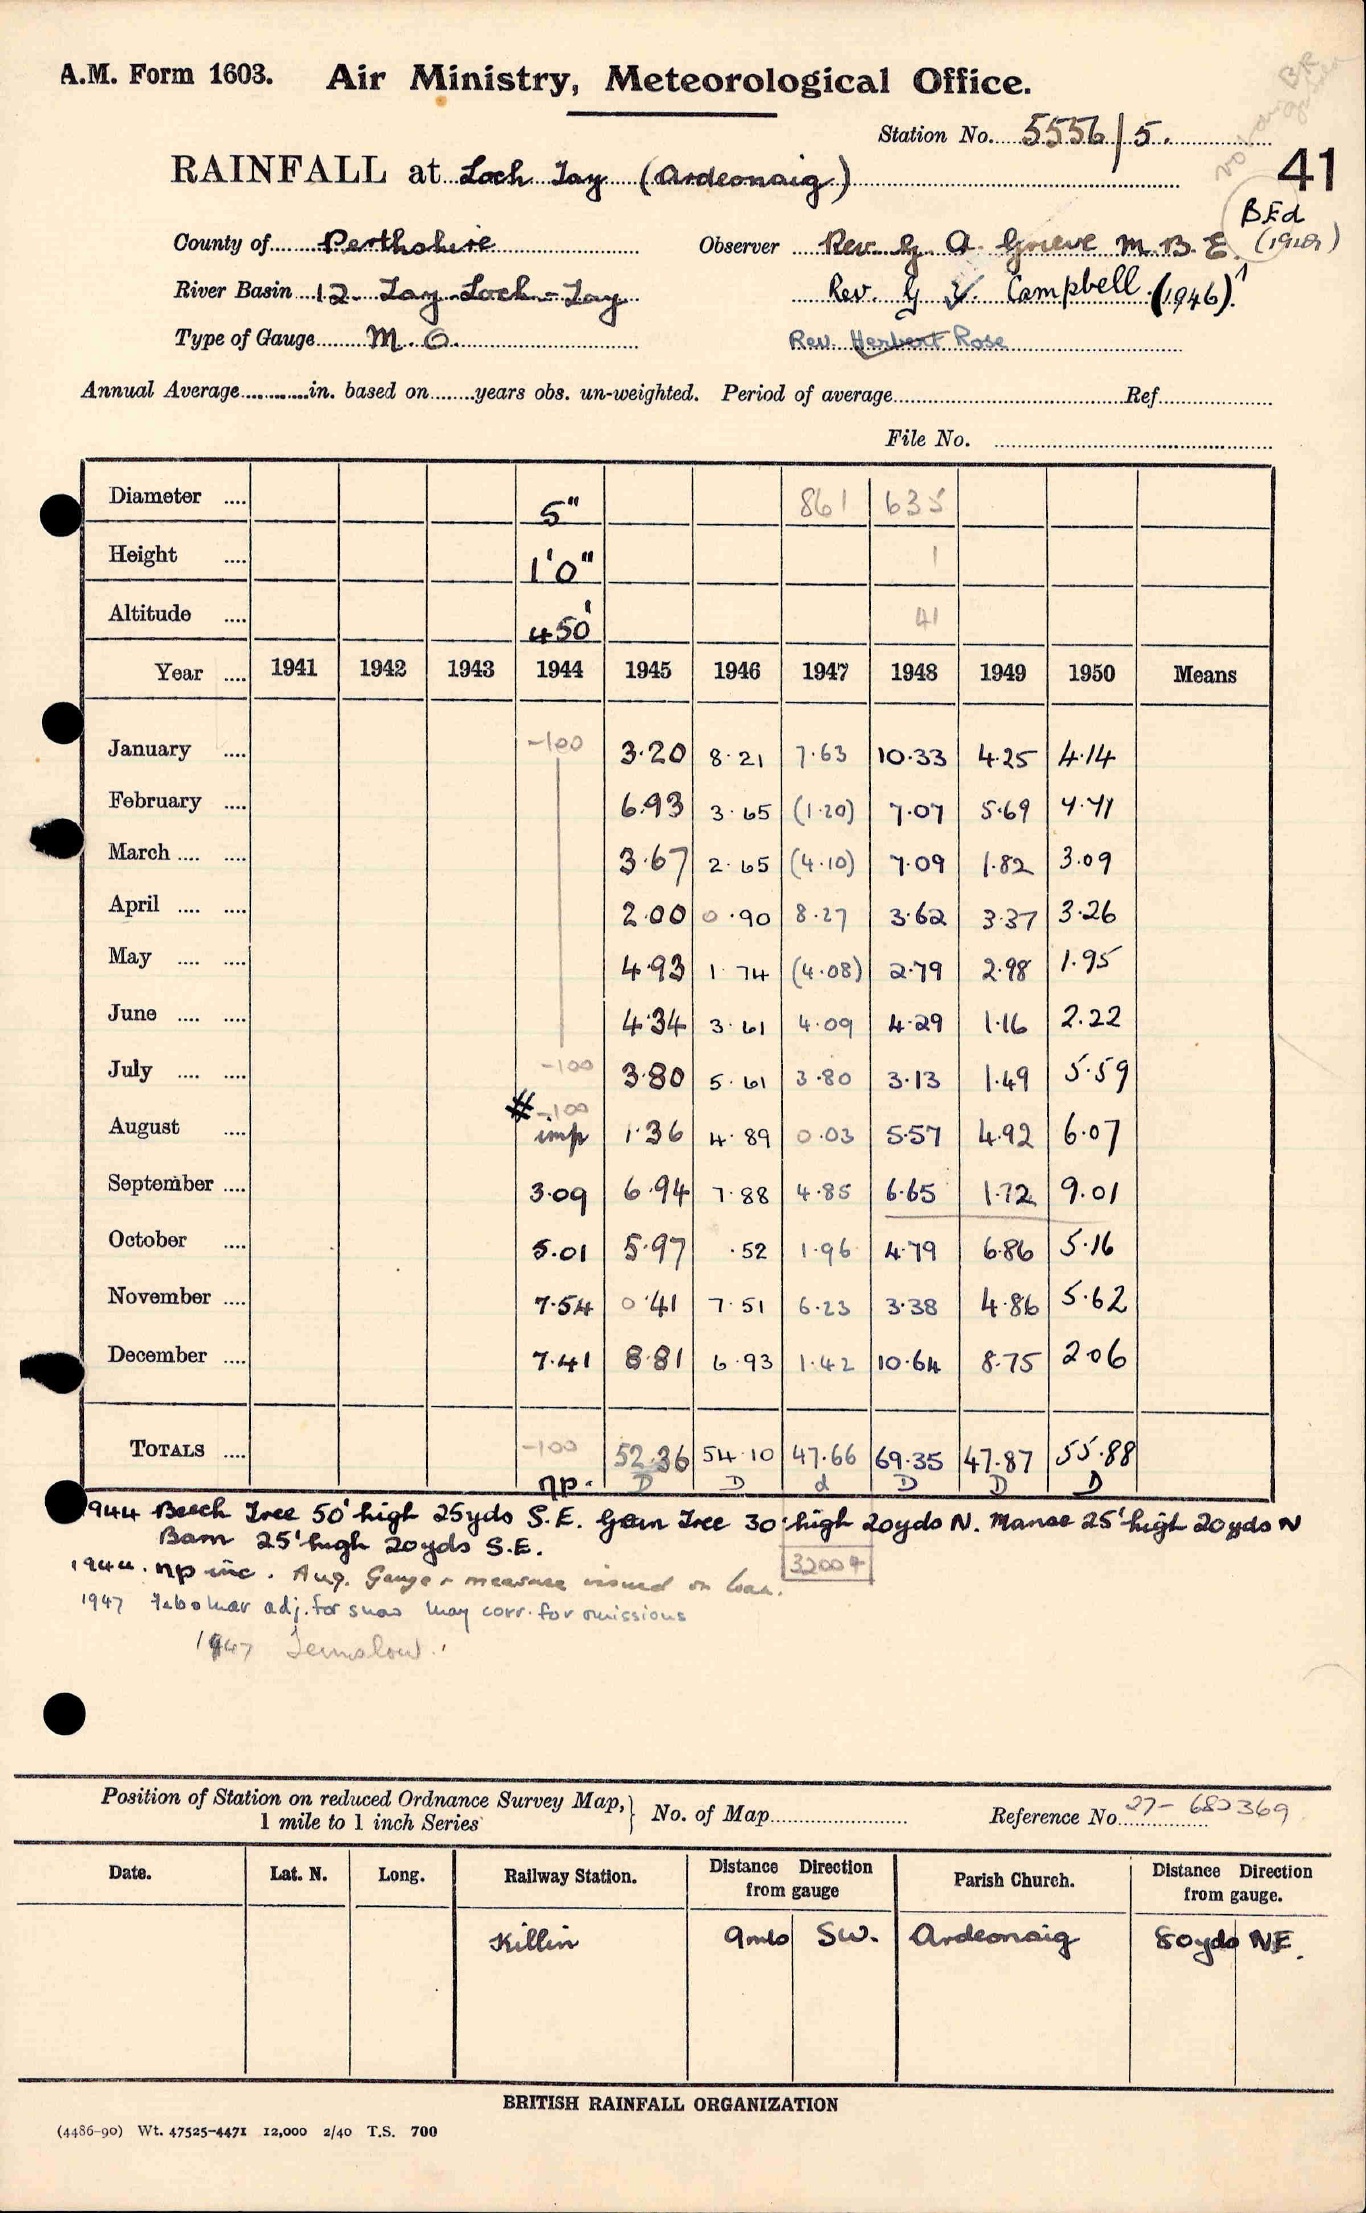 A.M. Form 1603. Air Ministry, Meteorological Office.
Station No. 5556/5.
41
RAINFALL at Loch Tay (Ardeonaig)
B.Ed
County of Perthshire Observer Rev. G. A. Grieve M.B.E. (1948)
River Basin 12. Tay-Loch-Tay Rev. G Campbell (1946)
Type of Gauge M.O. Rev. Herbert Rose
Annual Average............in. based on........years obs. un-weighted. Period of average Ref
File No.
Diameter .... 5" 861 635
Height .... 1'0" 1
Altitude .... 450' 41
Year .... 1941 1942 1943 1944 1945 1946 1947 1948 1949 1950 Means
January .... -100 3.20 8.21 7.63 10.33 4.25 4.14
February .... 6.93 3.65 (1.20) 7.07 5.69 4.41
March .... .... 3.67 2.65 (4.10) 7.09 1.82 3.09
April .... .... 2.00 0.90 8.27 3.62 3.37 3.26
May .... .... 4.93 1.74 (4.08) 2.79 2.98 1.95
June .... .... 4.34 3.61 4.09 4.29 1.16 2.22
July .... .... -100 3.80 5.61 3.80 3.13 1.49 5.59
# -100
August .... imp 1.36 4.89 0.03 5.57 4.92 6.07
September .... 3.09 6.94 7.88 4.85 6.65 1.72 9.01
October .... 5.01 5.97 .52 1.96 4.79 6.86 5.16
November .... 7.54 0.41 7.51 6.23 3.38 4.86 5.62
December .... 7.41 8.81 6.93 1.42 10.64 8.75 2.06
TOTALS .... -100 52.36 54.10 47.66 69.35 47.87 55.88
np. D D d D D D
1944 Beech Tree 50' high 25yds S.E. Gean Tree 30' high 20yds N. Manse 25' high 20yds N
Barn 25' high 20yds S.E.
1944. np inc. Aug. Gauge + measure issued on loan.
32004
1947 Feb & Mar adj. for snow May corr. for omissions
1947
Position of Station on reduced Ordnance Survey Map,
1 mile to 1 inch Series
No. of Map Reference No 27-682369
Date. Lat. N. Long. Railway Station. Distance Direction from gauge Parish Church. Distance Direction from gauge.
Killin 9mls SW. Ardeonaig 80yds NE.
BRITISH RAINFALL ORGANIZATION
(4486-90) Wt. 47525-4471 12,000 2/40 T.S. 700